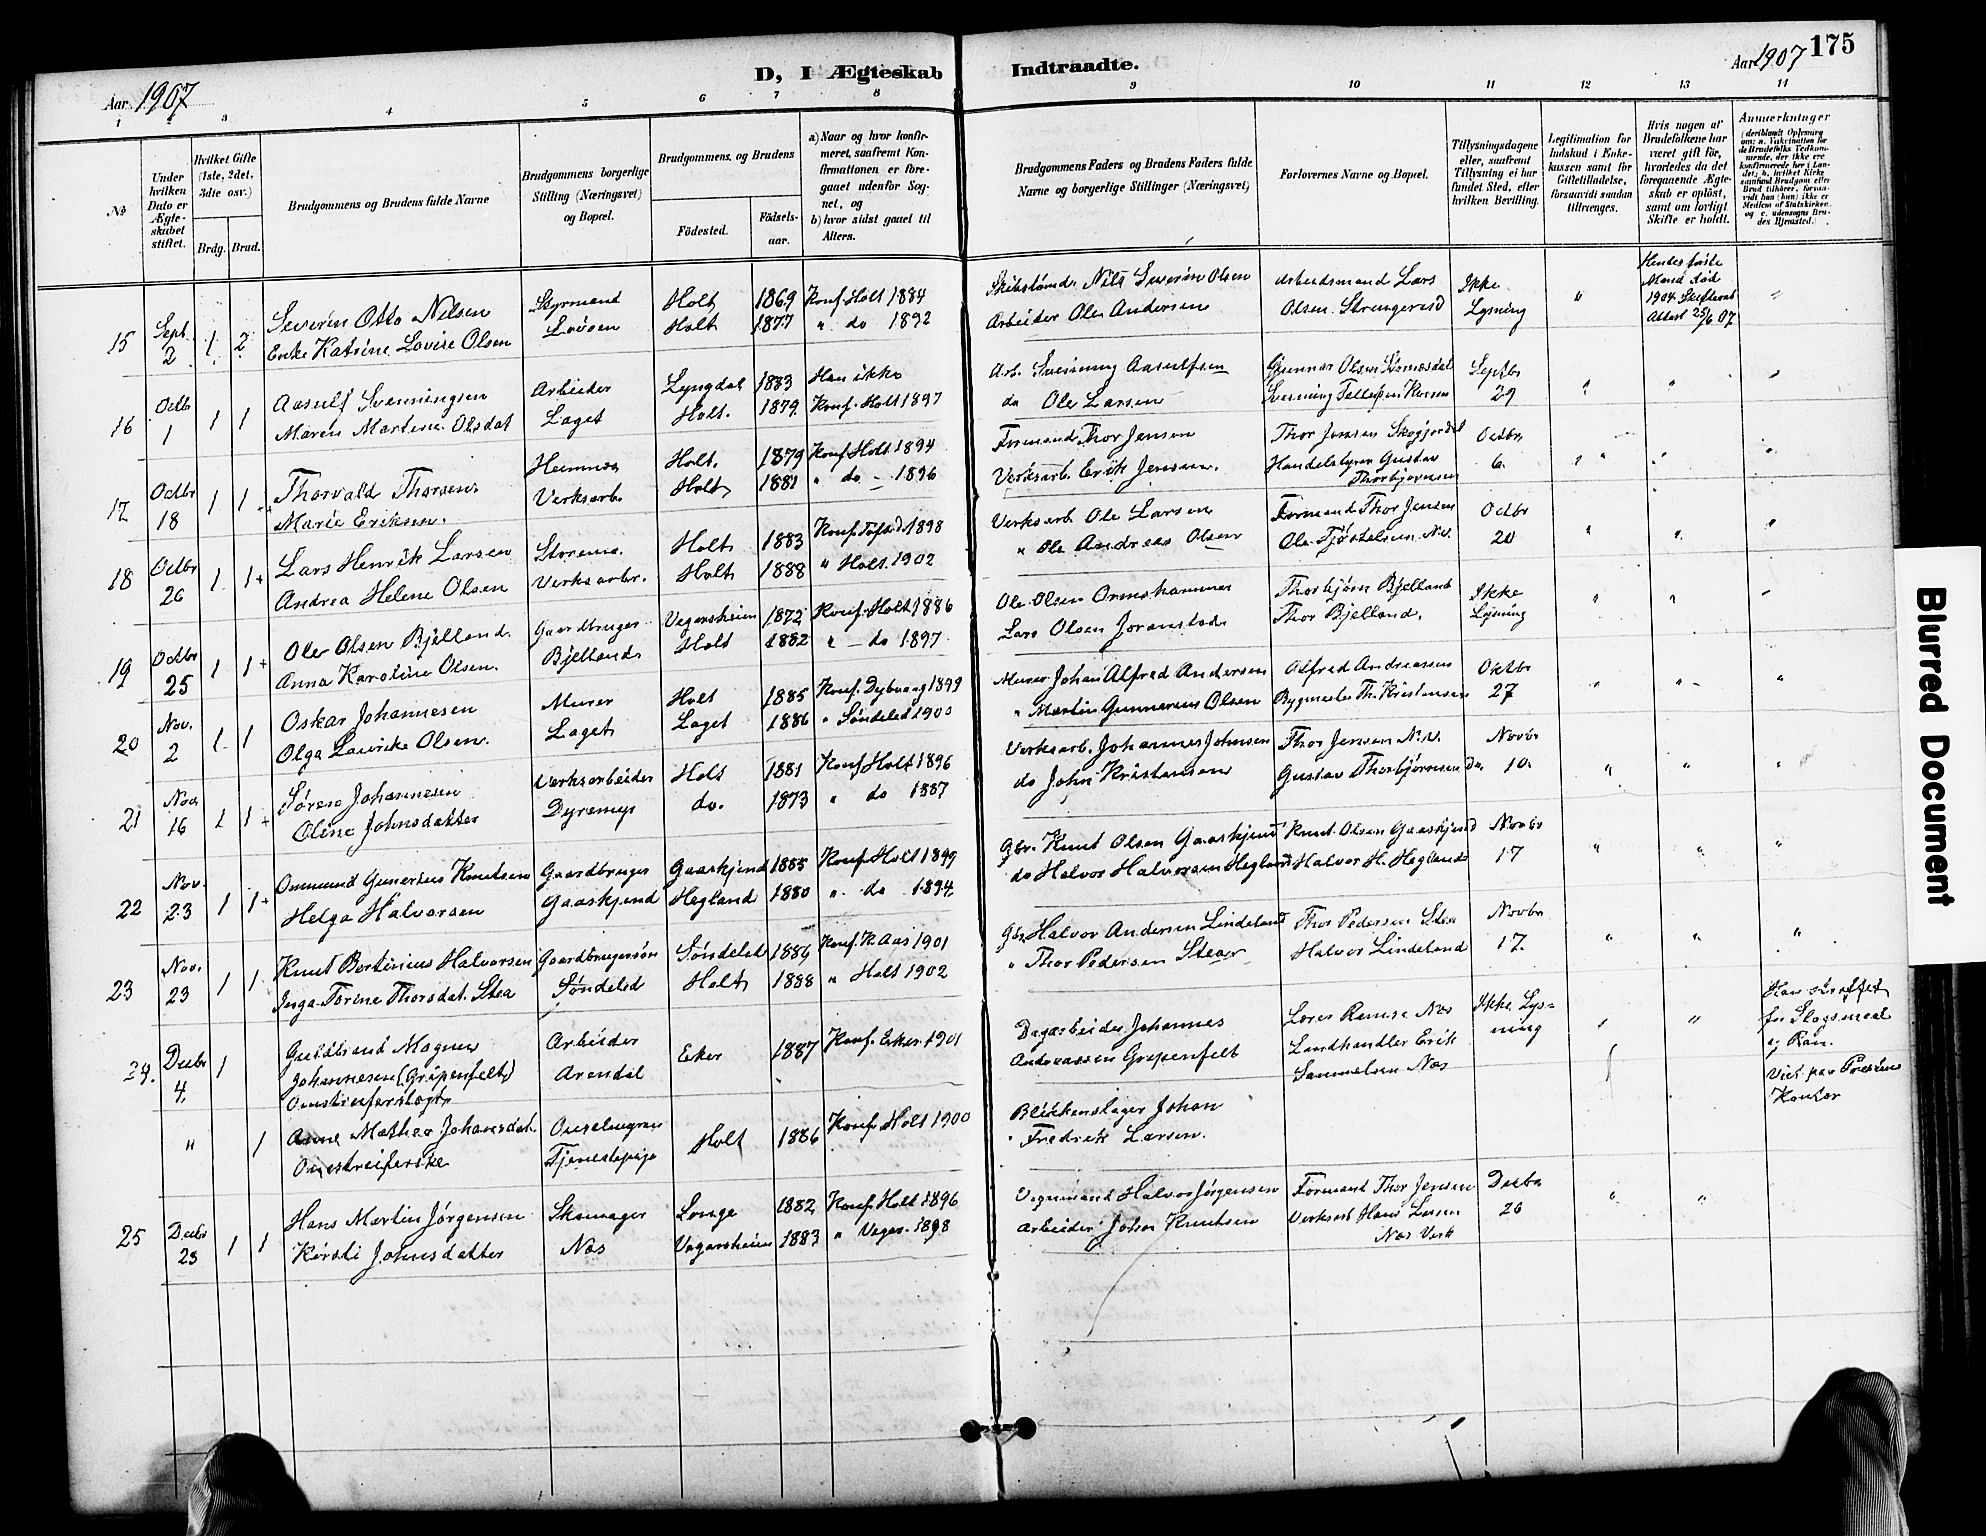 Aar 1907
D, I Ægteskab
Indtraadte.
Aar 1907
175
1 2 3 4 5 6 7 8 9 10 11 12 13 14
No
Under hvilken Dato er Ægteskabet stiftet.
Hvilket Gifte (1ste, 2det, 3dte osv.)
Brdg. Brud.
Brudgommens og Brudens fulde Navne
Brudgommens borgerlige Stilling (Næringsvei) og Bopæl.
Brudgommens, og Brudens
Födested.
Födsels-aar.
a) Naar og hvor konfirmeret, saafremt Konfirmationen er foregaaet udenfor Sognet, og
b) hvor sidst gaaet til Alters.
Brudgommens Faders og Brudens Faders fulde Navne og borgerlige Stillinger (Næringsvei)
Forlovernes Navne og Bopæl.
Tillysningsdagene eller, saafremt Tillysning ei har fundet Sted, efter hvilken Bevilling.
Legitimation for Indskud i Enkekassen samt for Giftetilladelse, forsaavidt saadan tiltrænges.
Hvis nogen af Brudefolkene har været gift för, hvorledes da det foregaaende Ægteskab er oplöst, samt om lovligt Skifte er holdt.
Anmerkninger
15 Sept. 2 1 2
Severin Otto Nilsen Styrmand Holt 1869 Konf. Holt 1884 Nils Severin Olsen Arbeidsmand Lars Ikke
Enke Katrine Lovise Olsen Holt 1877 " do 1892 Arbeider Ole Andersen Olsen Strengereid Lysning
Hendes første Mand död 1904. Skifteret. Attest 25/6 07
16 Octb 1 1 1
Aasulf Svenningsen Arbeider Lyngdal 1883 Han ikke Arb. Svenning Aasulfsen Gunnar Olsen Septbr
Maren Martine Olsdat Laget Holt. 1879 Konf. Holt 1897 do Ole Larsen Svenning 29
17 Octbr 18 1 1
Thorvald Thorsen Holt. 1879 Konf. Holt 1894 Formand Thor Jensen Thor Jensen Skogjordet Octbr
Marie Eriksen. Verksarb. Holt 1881 " do - 1896 Verksarb. Erik Jensen. Gustav Thorbjörnsen 6.
18 Octbr 26 1 1
Lars Henrik Larsen Holt 1883 Konf. 1898 Verksarb Ole Larsen Formand Thor Jensen Octbr
Andrea Helene Olsen Verksarbr. Holt 1888 " Holt. 1902 " Ole Andreas Olsen Ole 20
19 Octbr 25 1 1
Ole Olsen Bjelland. Gaardbruger Vegarsheien 1872 Konf. Holt 1886 Ole Olsen Thorbjørn Bjelland Ikke
Anna Karoline Olsen. Bjelland Holt 1882 " do 1897 Lars Olsen Thor Bjelland. Lysning
20 Nov. 2 1 1
Oskar Johannesen Murer Holt 1885 Konf. Dybvaag 1899 Murer Johan Alfred Andersen Alfred Andreassen Oktbr
Olga Olsen. Laget Laget 1886 " Søndeled 1900 " Martin Gunnerius Olsen Bygmester Th. Kristensen 27
21 Nov 16 1 1
Søren Johannesen Verksarbeider Holt 1881 Konf. Holt 1896 Verksarb. Johannes Johnsen Thor Jensen N.V. Novbr
Oline Johnsdatter Dyremyr do. 1873 " do 1887 do John Kristensen Gustav Thorbjørnsen do. 10.
22 Nov. 23 1 1
Ommund Gunerius Knutsen Gaardbruger Gaaskjend 1885 Konf. Holt 1899 Gbr. Knut Olsen Gaaskjend Knut Olsen Gaaskjend Novbr
Helga Halvorsen Gaaskjend Hegland 1880 " do 1894 do Halvor Halvorsen Hegland Halvor H. Hegland 17
23 Nov. 23 1 1
Knut Bertinius Halvorsen Gaardbrugersøn Søndeled 1886 Konf. K Aas 1901 Gbr Halvor Andersen Lindeland Thor Pedersen Stea Novbr
Inga Torine Thorsdat. Stea Søndeled Holt 1888 " Holt 1902 " Thor Pedersen Stea Halvor Lindeland 17.
24. Decbr 4. 1
Guldbrand Magnus Arbeider Eker 1887 Konf. Eker 1901 Dagarbeider Johannes Ikke Lys-
Johannesen (Gripenfelt) Arendal Andreassen Gripenfelt Landhandler Erik ning
Omstreiferslegt Samuelsen Næs
Han straffet for Slagsmaal og Ran. Viet paa Prestens Kontor
" 1
Anne Mathea Johansdat. Holt 1886 Konf. Holt 1900 Blikkenslager Johan
Omstreiferske Tjenestepige Fredrik Larsen.
25 Decbr 25 1 1
Hans Martin Jörgensen Skomager Songe 1882 Konf. Holt 1896 Halvor Jørgensen Formand Thor Jensen Decbr
Kirsti Johnsdatter Næs Vegarsheien 1883 " Vegar. 1898 Arbeider John Knutsen Verksarb Hans Larsen 26
Næs Verk
Blurred Document